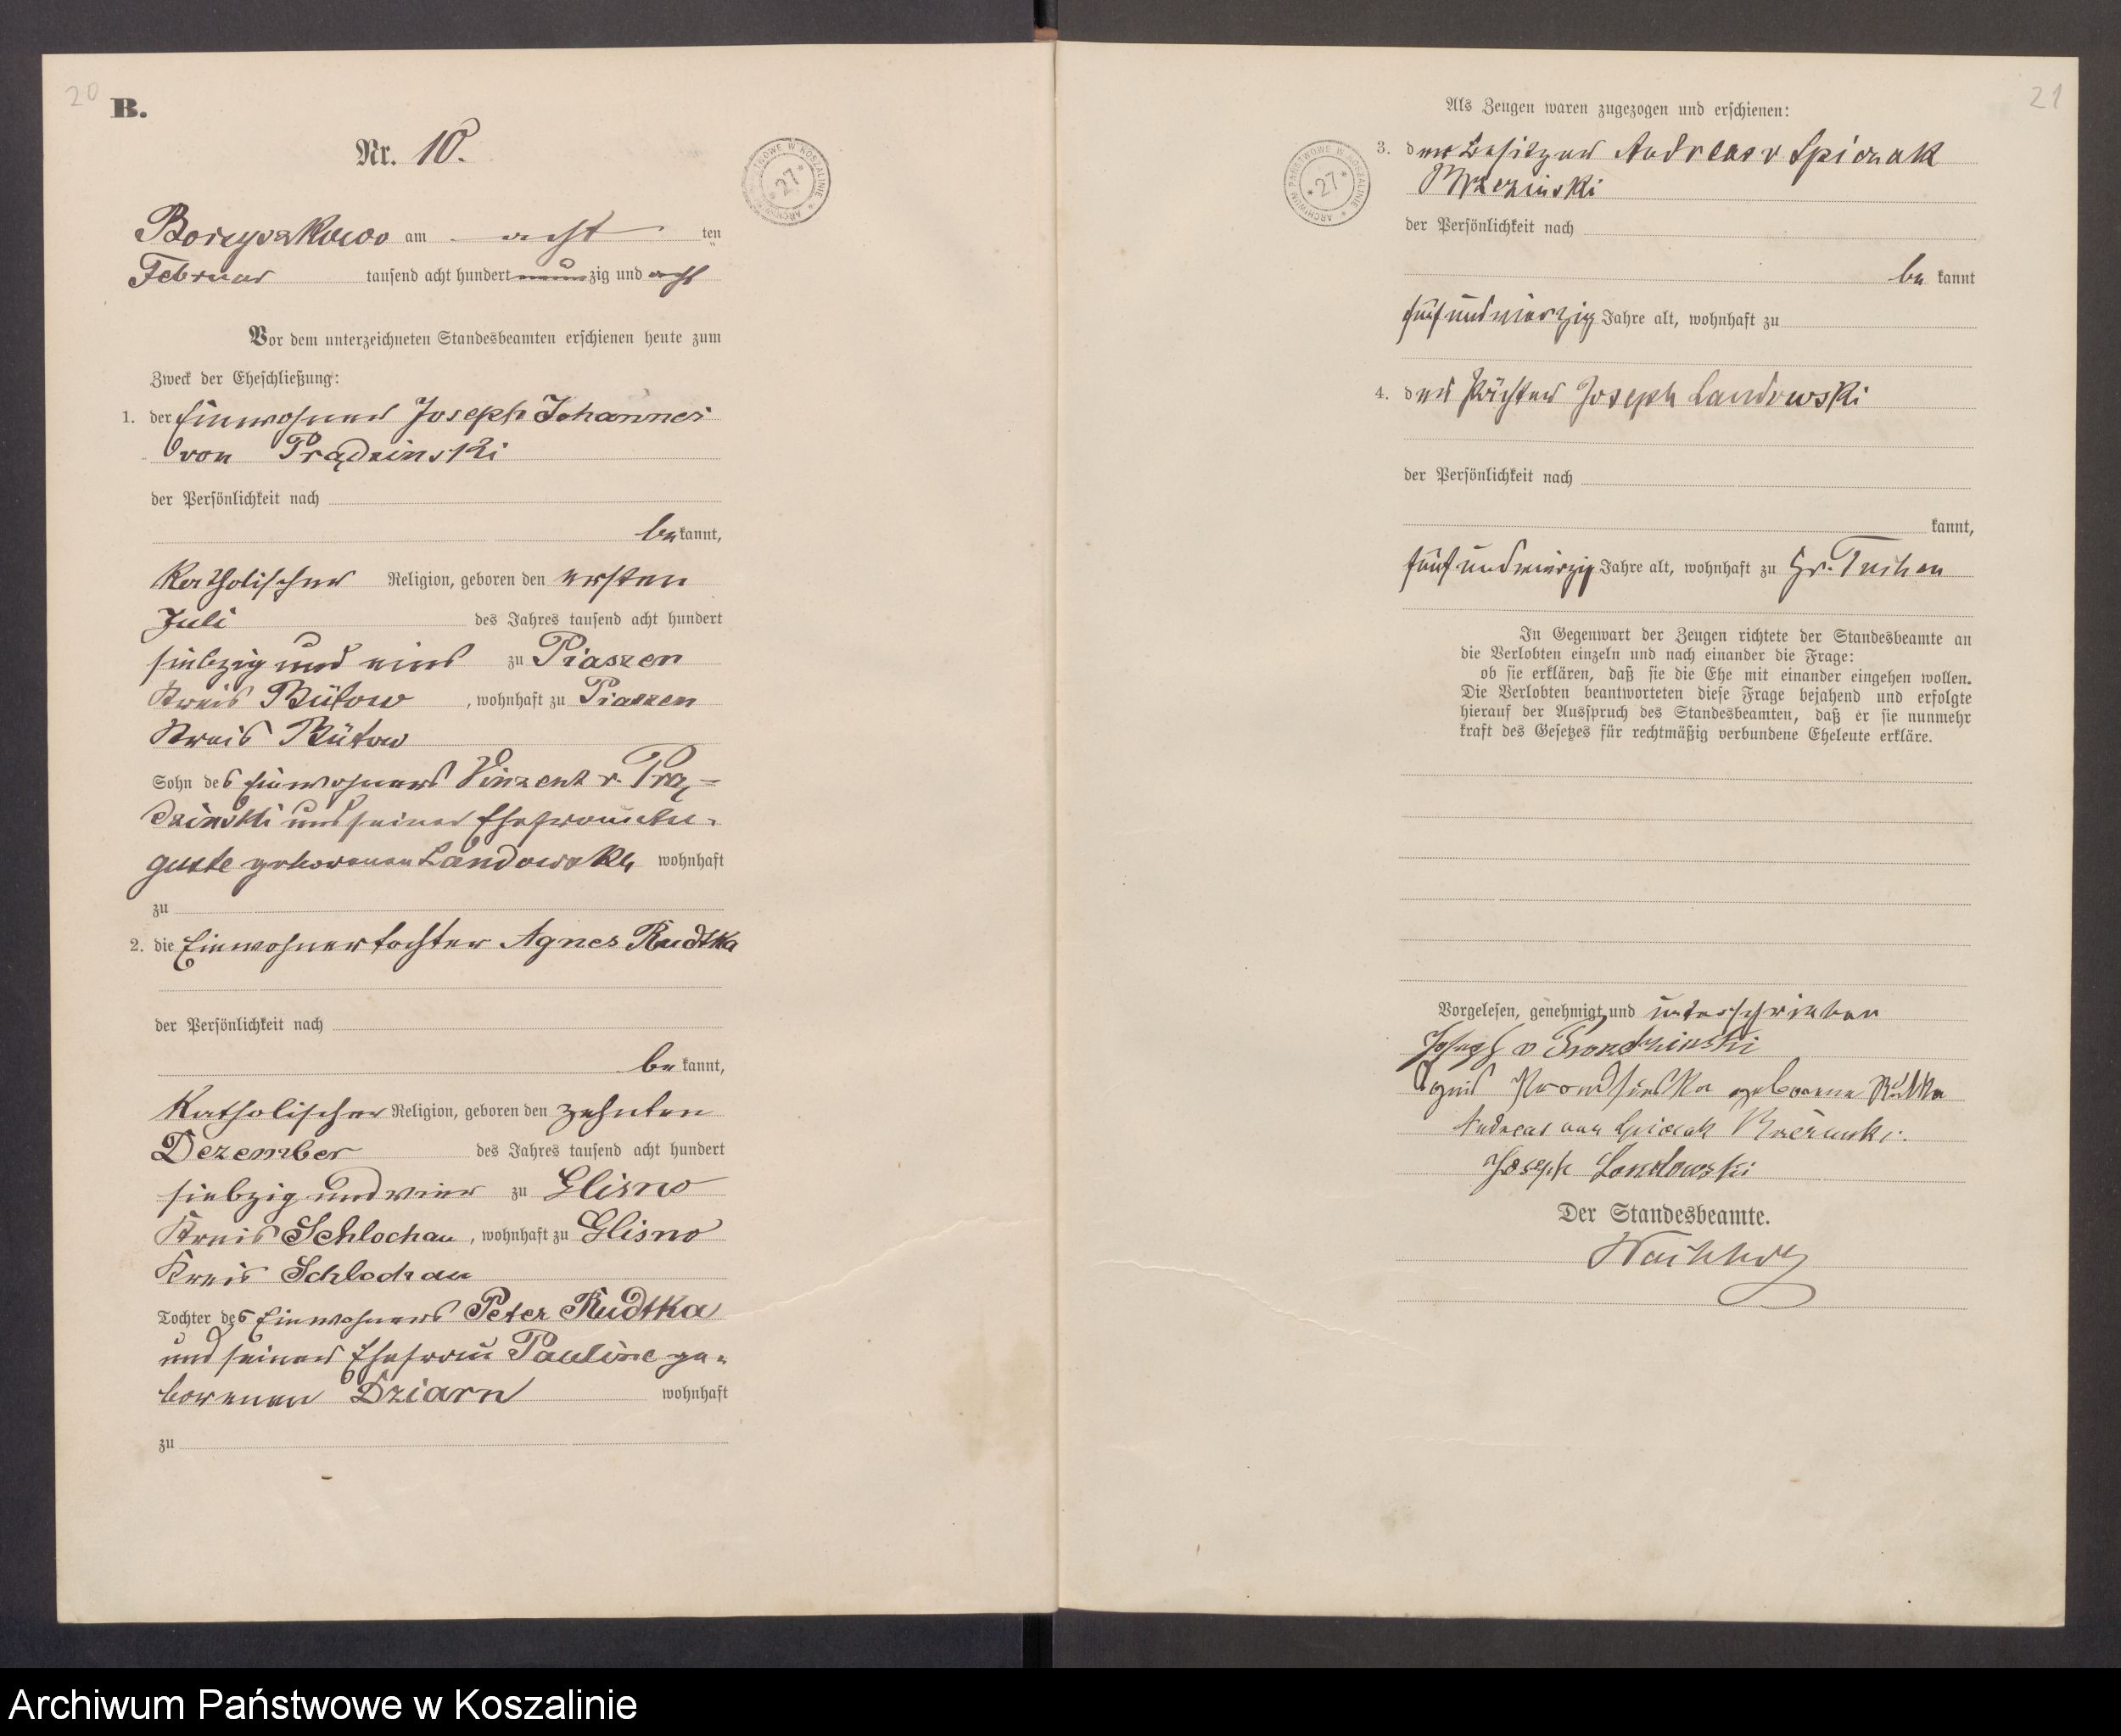 20
B.
Nr. 10.
ARCHIWUM PAŃSTWOWE W KOSZALINIE * 27 *
Borzyszkowo am acht ten
Februar tausend acht hundert neunzig und acht
Vor dem unterzeichneten Standesbeamten erschienen heute zum
Zweck der Eheschließung:
1. der Einwohner Joseph Johannes
von Prądzinski
der Persönlichkeit nach
bekannt,
Katholischer Religion, geboren den ersten
Juli des Jahres tausend acht hundert
siebzig und eins zu Piaszen
Kreis Bütow, wohnhaft zu Piaszen
Kreis Bütow
Sohn des Einwohners Vinzent v. Prą=
dzinski und seiner Ehefrau Au-
guste geborenen Landowska wohnhaft
zu
2. die Einwohnertochter Agnes Rudtka
der Persönlichkeit nach
bekannt,
Katholischer Religion, geboren den zehnten
Dezember des Jahres tausend acht hundert
siebzig und vier zu Glisno
Kreis Schlochau, wohnhaft zu Glisno
Kreis Schlochau
Tochter des Einwohners Peter Rudtka
und seiner Ehefrau Pauline ge-
borenen Dziarn wohnhaft
zu
21
Als Zeugen waren zugezogen und erschienen:
ARCHIWUM PAŃSTWOWE W KOSZALINIE * 27 *
3. der Besitzer Andreas v Spiczak
Brzezinski
der Persönlichkeit nach
bekannt
fünfundvierzig Jahre alt, wohnhaft zu
4. der Pächter Joseph Landowski
der Persönlichkeit nach
kannt,
fünfundvierzig Jahre alt, wohnhaft zu Gr. Tuchen
In Gegenwart der Zeugen richtete der Standesbeamte an
die Verlobten einzeln und nach einander die Frage:
ob sie erklären, daß sie die Ehe mit einander eingehen wollen.
Die Verlobten beantworteten diese Frage bejahend und erfolgte
hierauf der Ausspruch des Standesbeamten, daß er sie nunmehr
kraft des Gesetzes für rechtmäßig verbundene Eheleute erkläre.
Vorgelesen, genehmigt und unterschrieben
Joseph v Prondzinski
Agnes Prondsinska geborene Rudtka
Andreas von Spiczak Brzezinski.
Joseph Landowski
Der Standesbeamte.
Archiwum Państwowe w Koszalinie